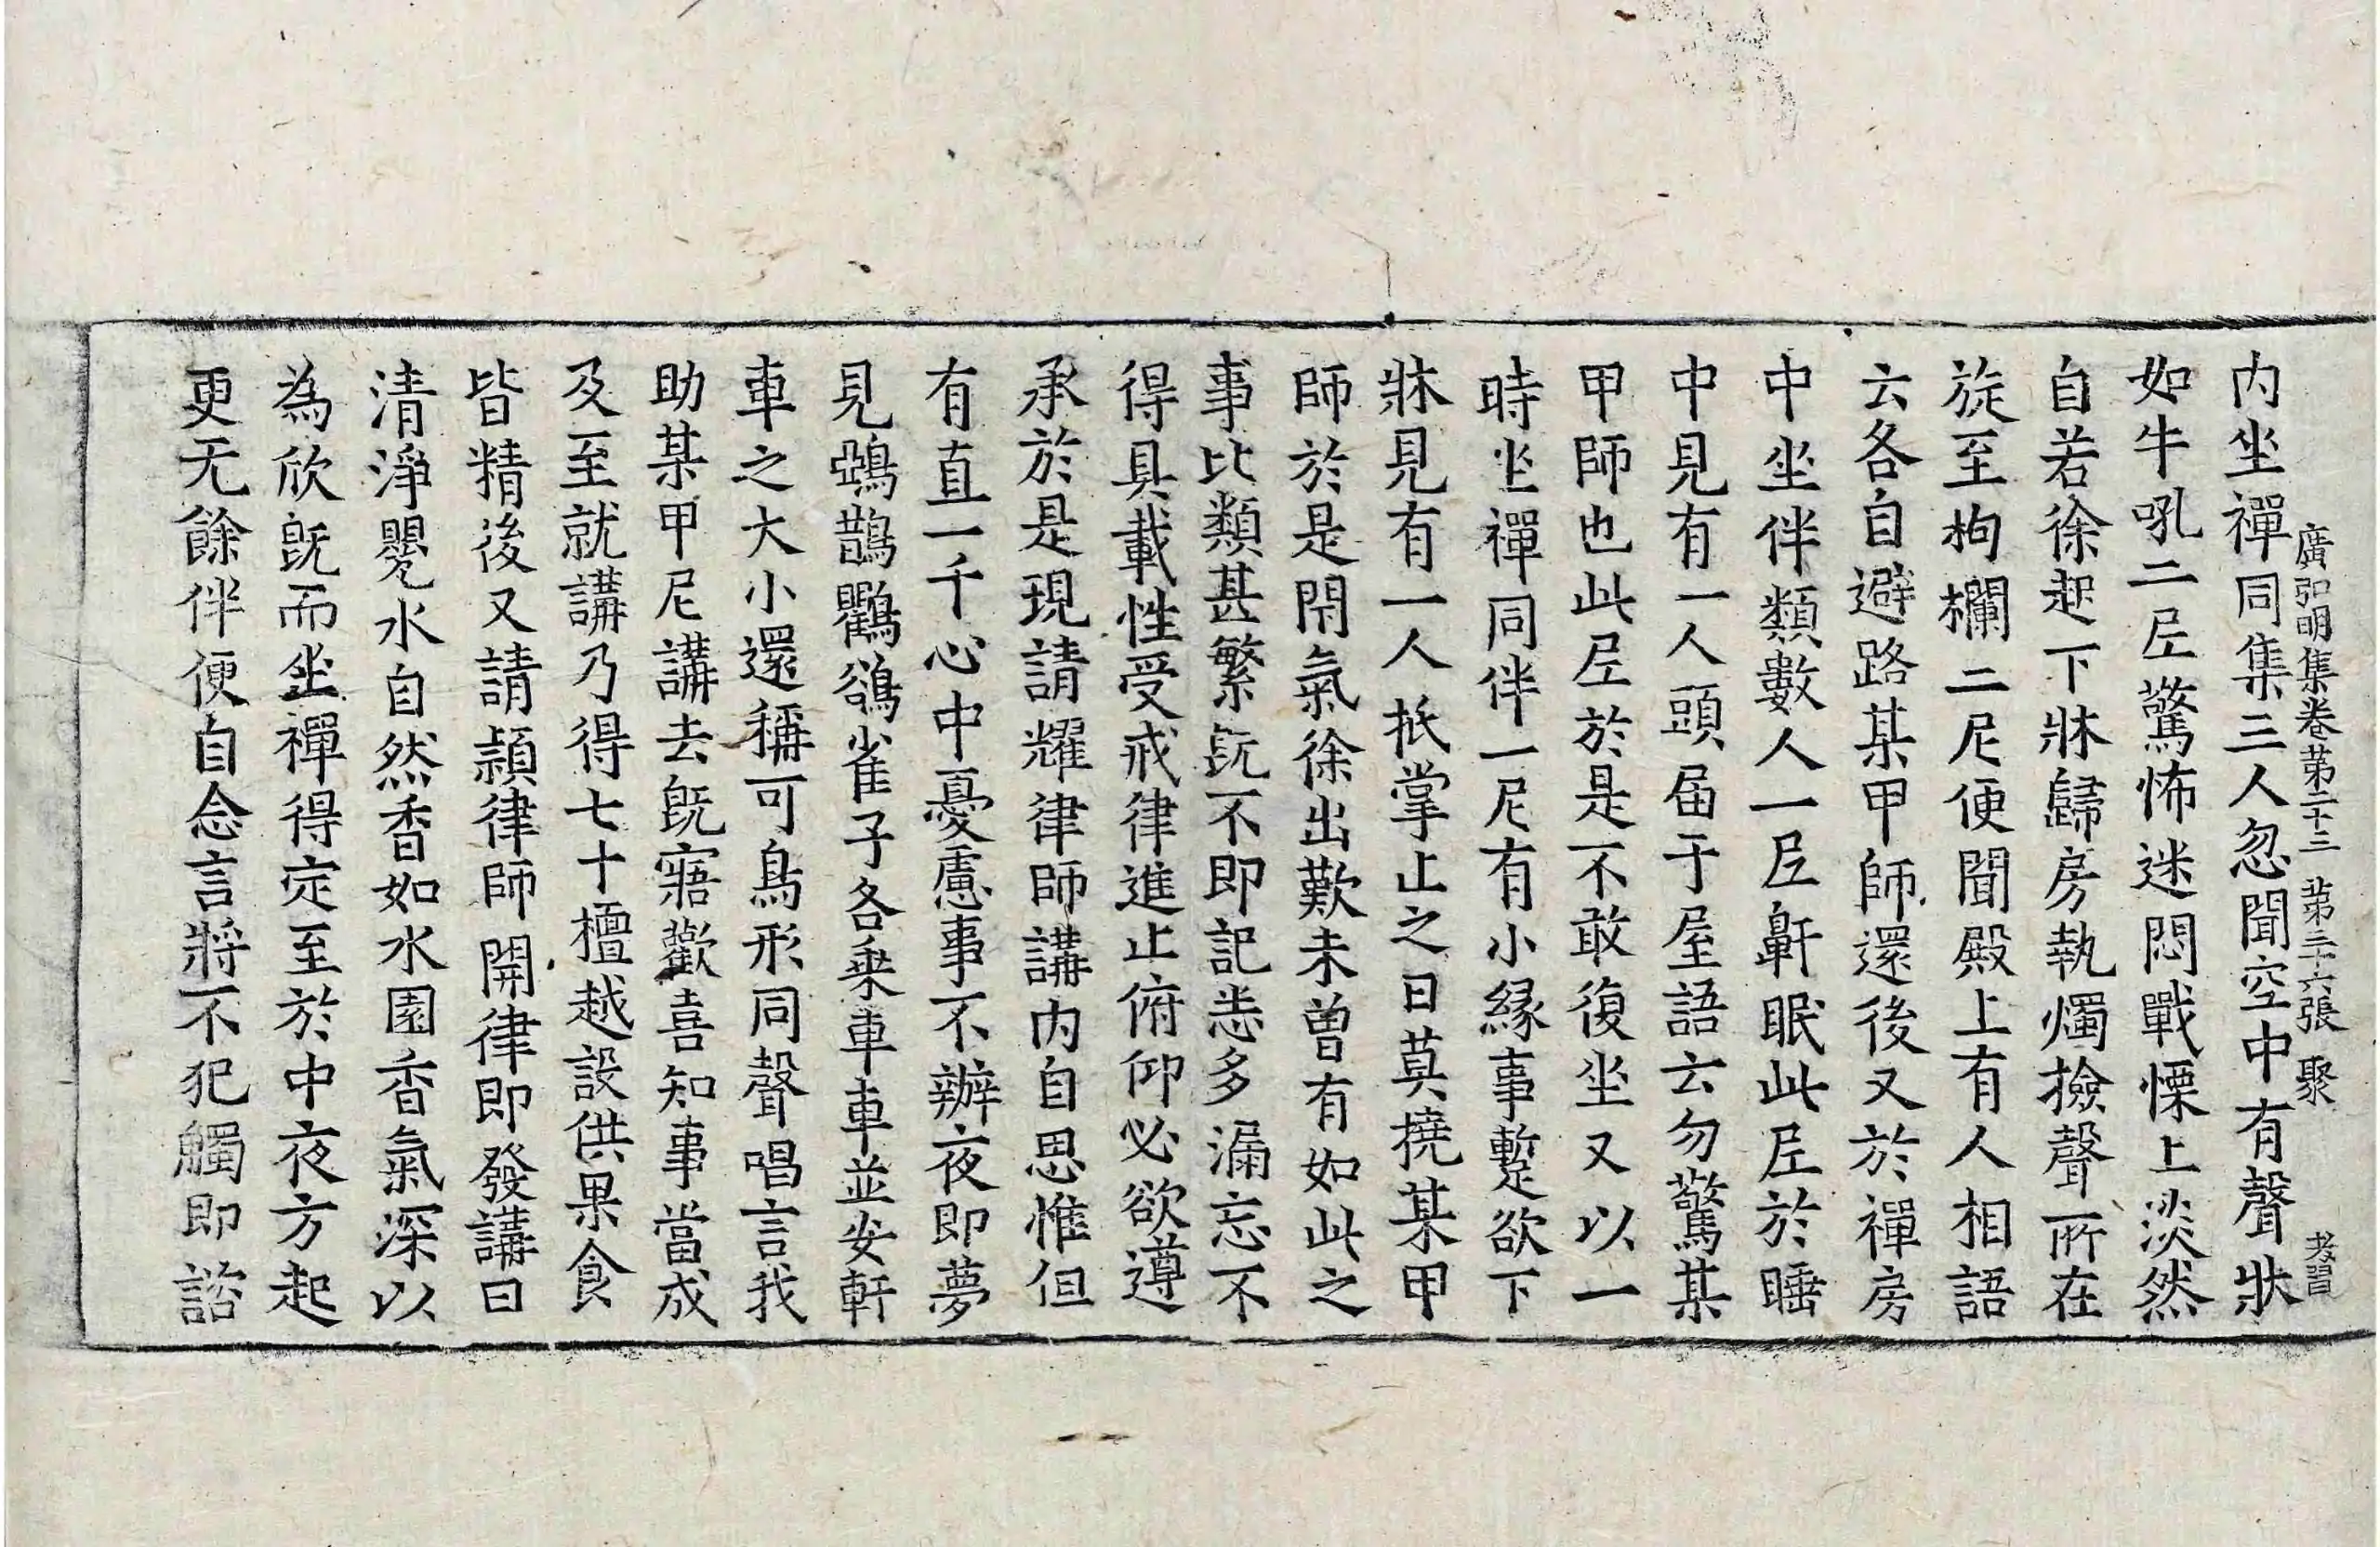 廣弘明集卷第二十三 第三十六張 聚
孝習
内坐禪同集三人忽聞空中有聲狀
如牛吼二𡰱驚怖迷悶戰慄上淡然
自若徐起下牀歸房執燭撿聲所在
旋至枸欄二尼便聞殿上有人相語
云各自避路某甲師還後又於禪房
中坐伴類數人一𡰱鼾眠此𡰱於睡
中見有一人頭届于屋語云勿驚某
甲師也此𡰱於是不敢復坐又以一
時坐禪同伴一尼有小緣事蹔欲下
牀見有一人抵掌止之曰莫撓某甲
師於是閇氣徐出歎未曽有如此之
事比類甚繁旣不即記恙多漏忘不
得具載性受戒律進止俯仰必欲遵
承於是現請耀律師講内自思惟但
有直一千心中憂慮事不辦夜即夢
見鵶鵲鸜鵒雀子各乗車車並安軒
車之大小還稱可鳥形同聲唱言我
助某甲尼講去旣寤歡喜知事當成
及至就講乃得七十檀越設供果食
皆精後又請頴律師開律即發講日
清淨甖水自然香如水園香氣深以
為欣旣而坐禪得定至於中夜方起
更无餘伴便自念言將不犯觸即諮